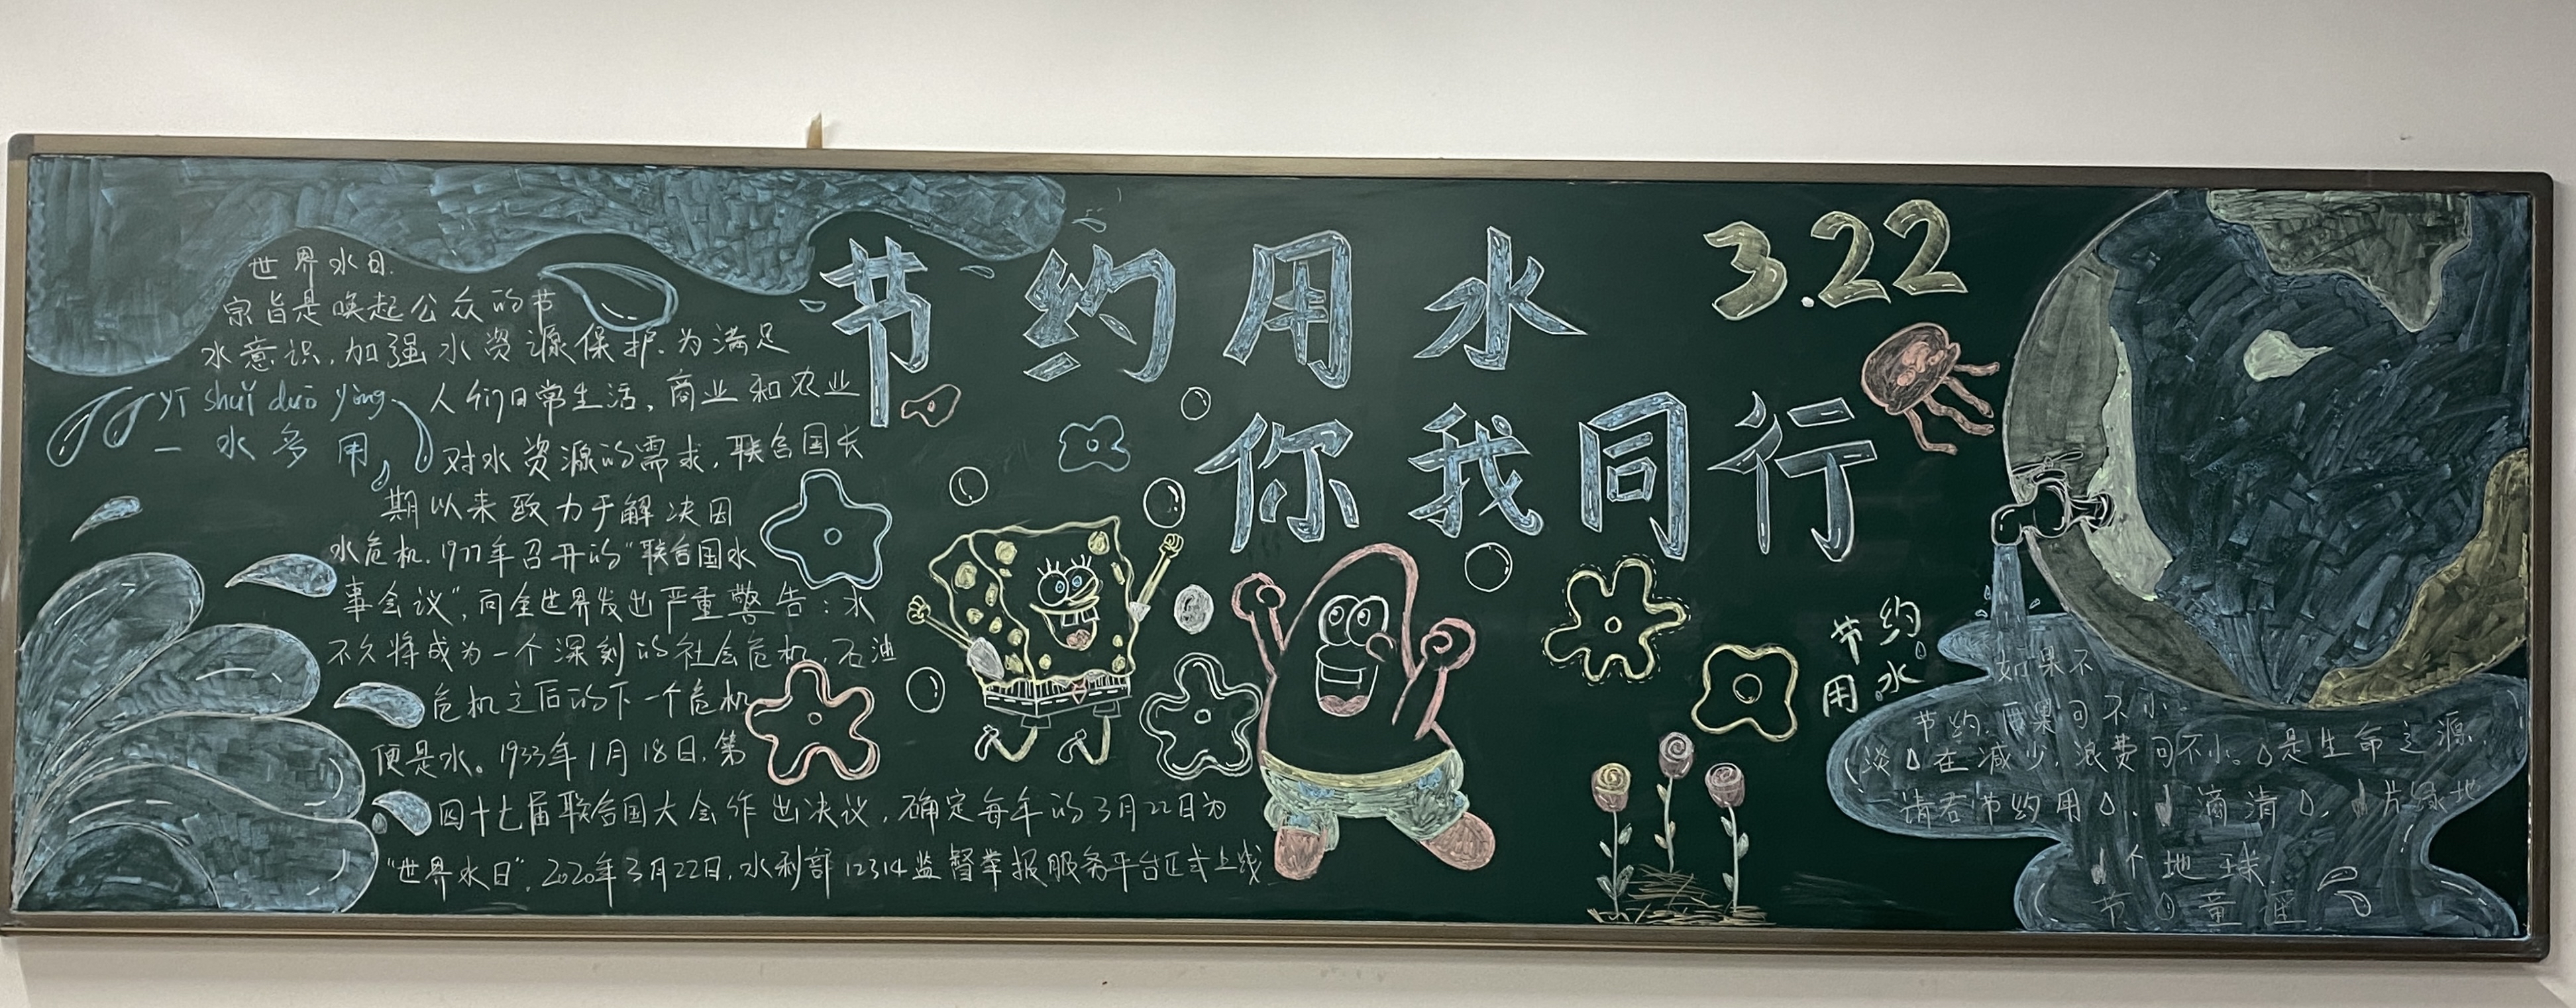 节约用水
3.22
你我同行
世界水日.
宗旨是唤起公众的节
水意识,加强水资源保护.为满足
人们日常生活,商业和农业
对水资源的需求,联合国长
期以来致力于解决因
水危机.1977年召开的"联合国水
事会议",向全世界发出严重警告:水
不久将成为一个深刻的社会危机,石油
危机之后的下一个危机
便是水。1933年1月18日,第
四十七届联合国大会作出决议,确定每年的3月22日为
"世界水日".2020年3月22日,水利部12314监督举报服务平台正式上线
yī shuǐ duō yòng
一水多用
节约
用水
如果不
节约.后果可不小
淡 在减少,浪费可不小。 是生命之源.
请君节约用 滴清 片绿地
个地球
节 童谣